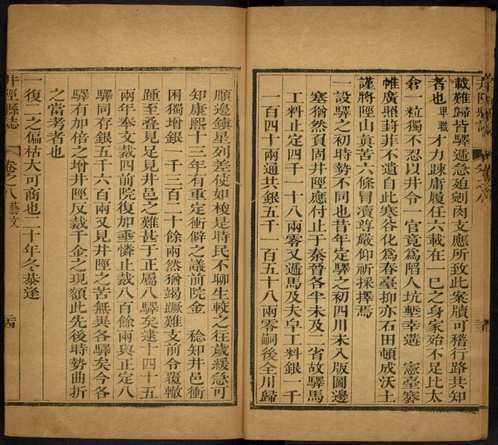 載難歸皆驛遞急迫剜肉支應所致此案牘可稽行路共知
者也卑職才力疎庸履任六載在一己之身家殆不足比太
倉一粒獨不忍以井令一官竟為陷人坑塹幸選　憲臺察
帷廣照葑非不遺自此寒谷化為春臺抑亦石田頓成沃土
謹將陘山眞苦六條冒瀆尊嚴仰祈採擇焉
一設驛之初時勢不同也昔年定驛之初四川未入版圖邊
塞猶然負固井陘應付止于秦晉各半未及二省故驛馬
工料止定四千一百十八兩零又遞馬及夫皁工料銀一千
一百四十兩通共銀五千一百五十八兩零嗣後全川歸
順邊鎮星列差使如梭是時民不聊生較之往歲緩急可
知康熙十三年有重定衝僻之議前院金　稔知井邑衝
困獨增銀一千三百二十餘兩然猶竭蹶難支前令覆轍
踵至疊見足見井邑之難甚于正屬八驛矣逮十四十五
兩年奉文裁四前院復加垂憐止裁八百餘兩與正定八
驛同存銀五千六百兩又見井陘之苦無異各驛矣今各
驛有加倍之增井陘反裁千金之現額此先後時勢曲折
之當籌者也
一復一之偏枯大可商也二十年冬恭逢
井陘縣志
卷之八藝文